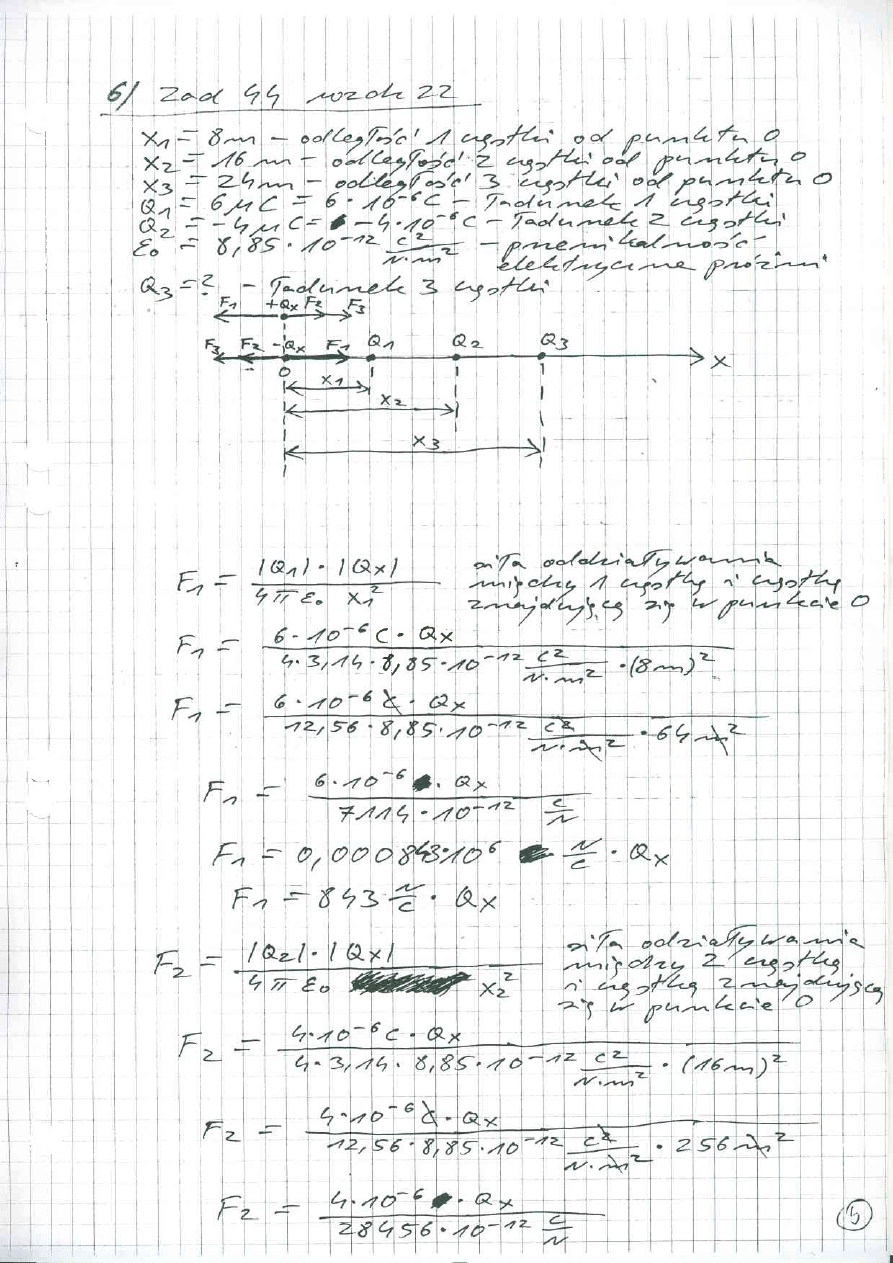 6/ Zad 44 rozdz 22
X1 = 8m - odległość 1 cząstki od punktu 0
X2 = 16m - odległość 2 cząstki od punktu 0
X3 = 24m - odległość 3 cząstki od punktu 0
Q1 = 6μC = 6·10⁻⁶C - ładunek 1 cząstki
Q2 = -4μC = -4·10⁻⁶C - ładunek 2 cząstki
ε₀ = 8,85·10⁻¹² C²/N·m² - przenikalność
elektryczna próżni
Q3 = ? - ładunek 3 cząstki
F1 +Qx F2 F3
F3 F2 -Qx F1 Q1 Q2 Q3
X
0
X1
X2
X3
F1 = |Q1|·|Qx| / 4πε₀ X1²
siła oddziaływania
między 1 cząstką i cząstką
znajdującą się w punkcie 0
F1 = 6·10⁻⁶C·Qx / 4·3,14·8,85·10⁻¹² C²/N·m² ·(8m)²
F1 = 6·10⁻⁶C·Qx / 12,56·8,85·10⁻¹² C²/N·m² ·64m²
F1 = 6·10⁻⁶·Qx / 7114·10⁻¹² C/N
F1 = 0,000843·10⁶ N/C · Qx
F1 = 843 N/C · Qx
F2 = |Q2|·|Qx| / 4πε₀ X2²
siła odziaływania
między 2 cząstką
i cząstką znajdującą
się w punkcie 0
F2 = 4·10⁻⁶C·Qx / 4·3,14·8,85·10⁻¹² C²/N·m² ·(16m)²
F2 = 4·10⁻⁶C·Qx / 12,56·8,85·10⁻¹² C²/N·m² ·256m²
F2 = 4·10⁻⁶·Qx / 28456·10⁻¹² C/N
5